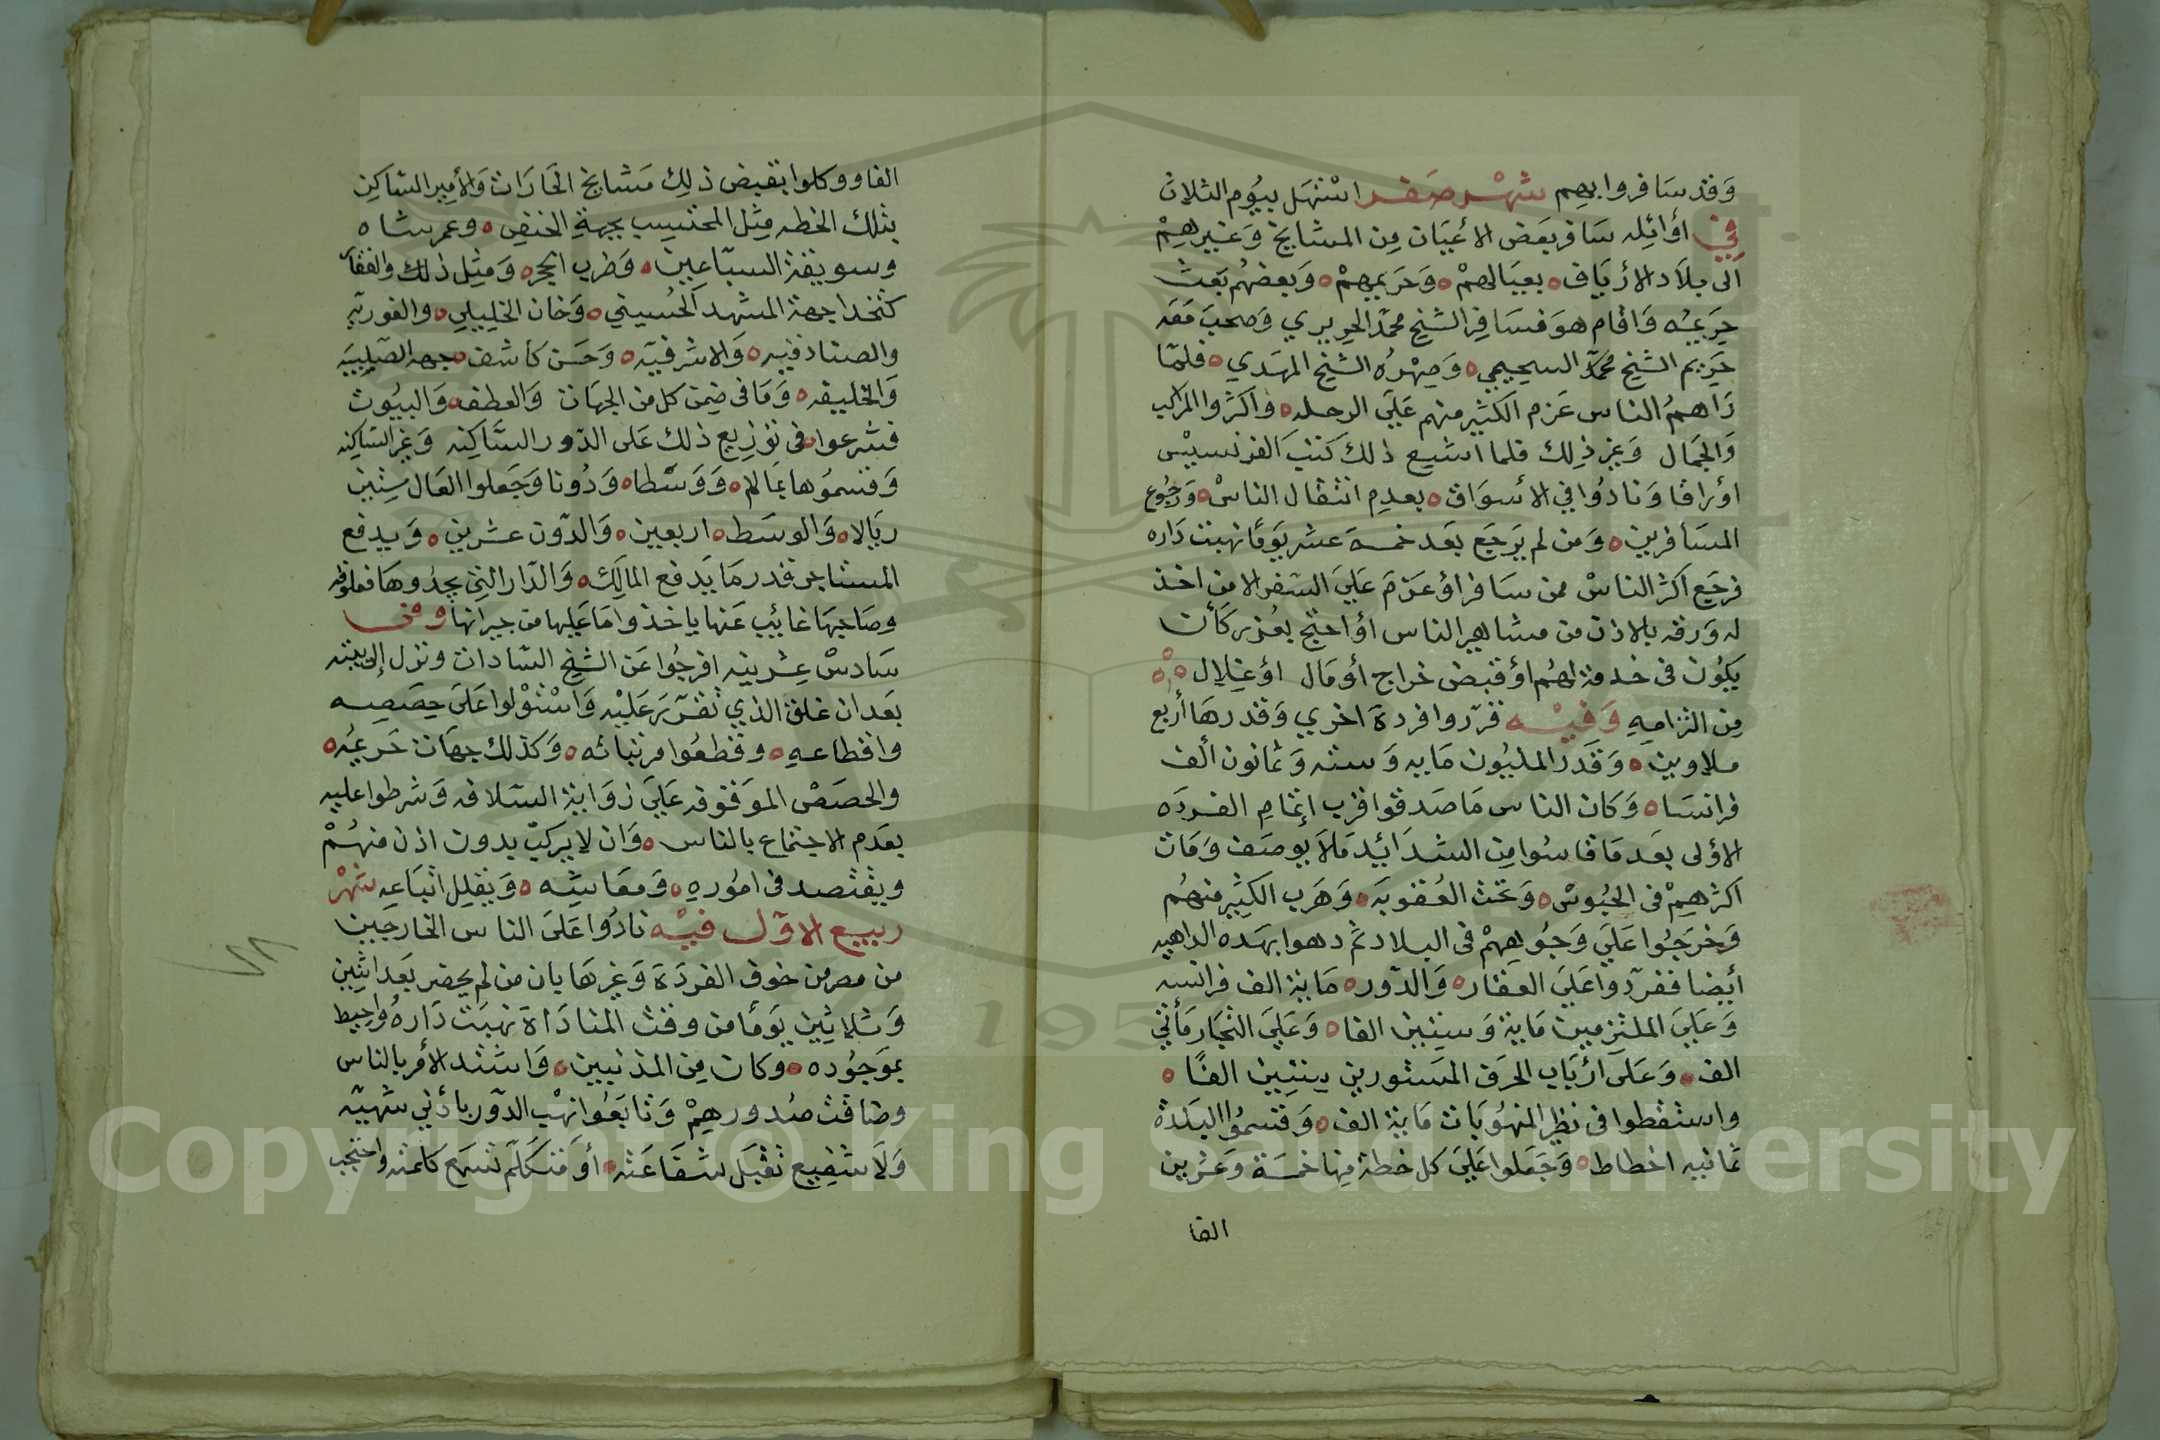 وقد سافروا بهم شهر صفر استهل بيوم الثلاث
في أوائله سافر بعض الأعيان من المشايخ وغيرهم
الى بلاد الأرياف بعيالهم وحريمهم وبعضهم بعث
حريمه واقام هو فسافر الشيخ محمد الحريري وصحب معه
حريم الشيخ محمد السحيمي وصهره الشيخ المهدي فلما
رَاهم الناس عزم الكثير منهم علي الرحله واكتروا المراكب
والجمال وغير ذلك فلما اشيع ذلك كتب الفرنسيس
أوراقا ونادُوا في الأسواق بعدم انتقال الناس ورجُوع
المسافرين ومن لم يرجع بعد خمسة عشر يومًا نهبت داره
فرجع اكثر الناس ممن سافر أو عزم علي السفر الا من اخذ
له ورقه بالاذن من مشاهير الناس أو احتج بعذر كأن
يكون في خدمة لهم أو قبض خراج أو مال أو غلال
من التزامه وفيه قرروا فردة اخري وقدرها أربع
ملاوين وقدر المليون مايه وسته وثمانون ألف
فرانسا وكان الناس ما صدقوا قرب إتمام الفرده
الأولى بعد ما قاسوا من الشدائد ملا يوصف ومات
اكثرهم في الحبوس وتحت العقوبه وهرب الكثير منهم
وخرجوا علي وجوههم في البلاد ثم دهوا بهده الداهيه
أيضا فقرروا علي العقار والدور مائة الف فرانسه
وعلي الملتزمين مائة وستين الفا وعلي التجار مأتي
الف وعلى أرباب الحرف المستورين ستين الفًا
واستقطوا في نظير المنهوبات مائة الف وقسموا البلدة
ثمانيه اخطاط وجعلوا علي كل خطة منها خمسة وعشرين
الفا
الفا ووكلوا بقبض ذلك مشايخ الحارات والأمير الساكن
بتلك الخطه مثل المحتسب بجهة الحنفى وعمر شاه
وسويقة السباعين ودرب الحجر ومثل ذلك والفقار
كتخدا جهة المشهد الحسيني وخان الخليلي والغوريه
والصنادقيه والاشرفيه وحسن كاشف جهه الصليبيه
والخليفه وما في ضمن كل من الجهات والعطف والبيوت
فشرعوا في توزيع ذلك على الدور الساكنه وغير الساكنه
وقسموها عَالم ووسطا ودُونا وجعلوا العَال ستين
ريالا والوسط اربعين والدون عشرين ويدفع
المستاجر قدر ما يدفع المالك والدار التي يجدوها مغلوقه
وصاحبها غائب عنها ياخذوا ما عليها من جيرانها وفي
سادس عشرينه افرجُوا عن الشيخ السادات ونزل إلى بيته
بعد ان غلق الذي تقرر عليه واستولوا على حصصه
واقطاعه وقطعُوا مرتباته وكذلك جهات حريمُه
والحصص الموقوفه علي زواية اسلافه وشرطوا عليه
بعدم الاجتماع بالناس وان لا يركب بدون اذن منهُمْ
ويقتصد في اموره ومعايشه ويقلل اتباعه شهر
ربيع الاول فيه نادُوا على الناس الخارجين
من مصر من خوف الفردة وغيرها بان من لم يحضر بعد اثنين
وثلاثين يومًا من وقت المناداة نهبت داره واحيط
بموجُوده وكان من المذنبين واشتد الأمر بالناس
وضاقت صُدورهمْ وتابعُوا نهْب الدور بأدني شهيه
ولا شفيع تقبل شفاعته أو متكلم تسمع كلمته واحتجب